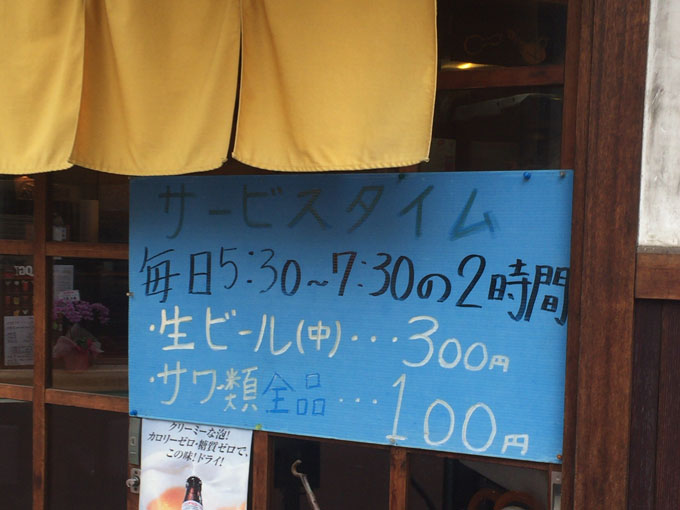 サービスタイム
毎日5:30~7:30の2時間
・生ビール(中)・・・300円
・サワー類全品・・・100円
クリーミーな泡!
カロリーゼロ・糖質ゼロで、
この味!ドライ!